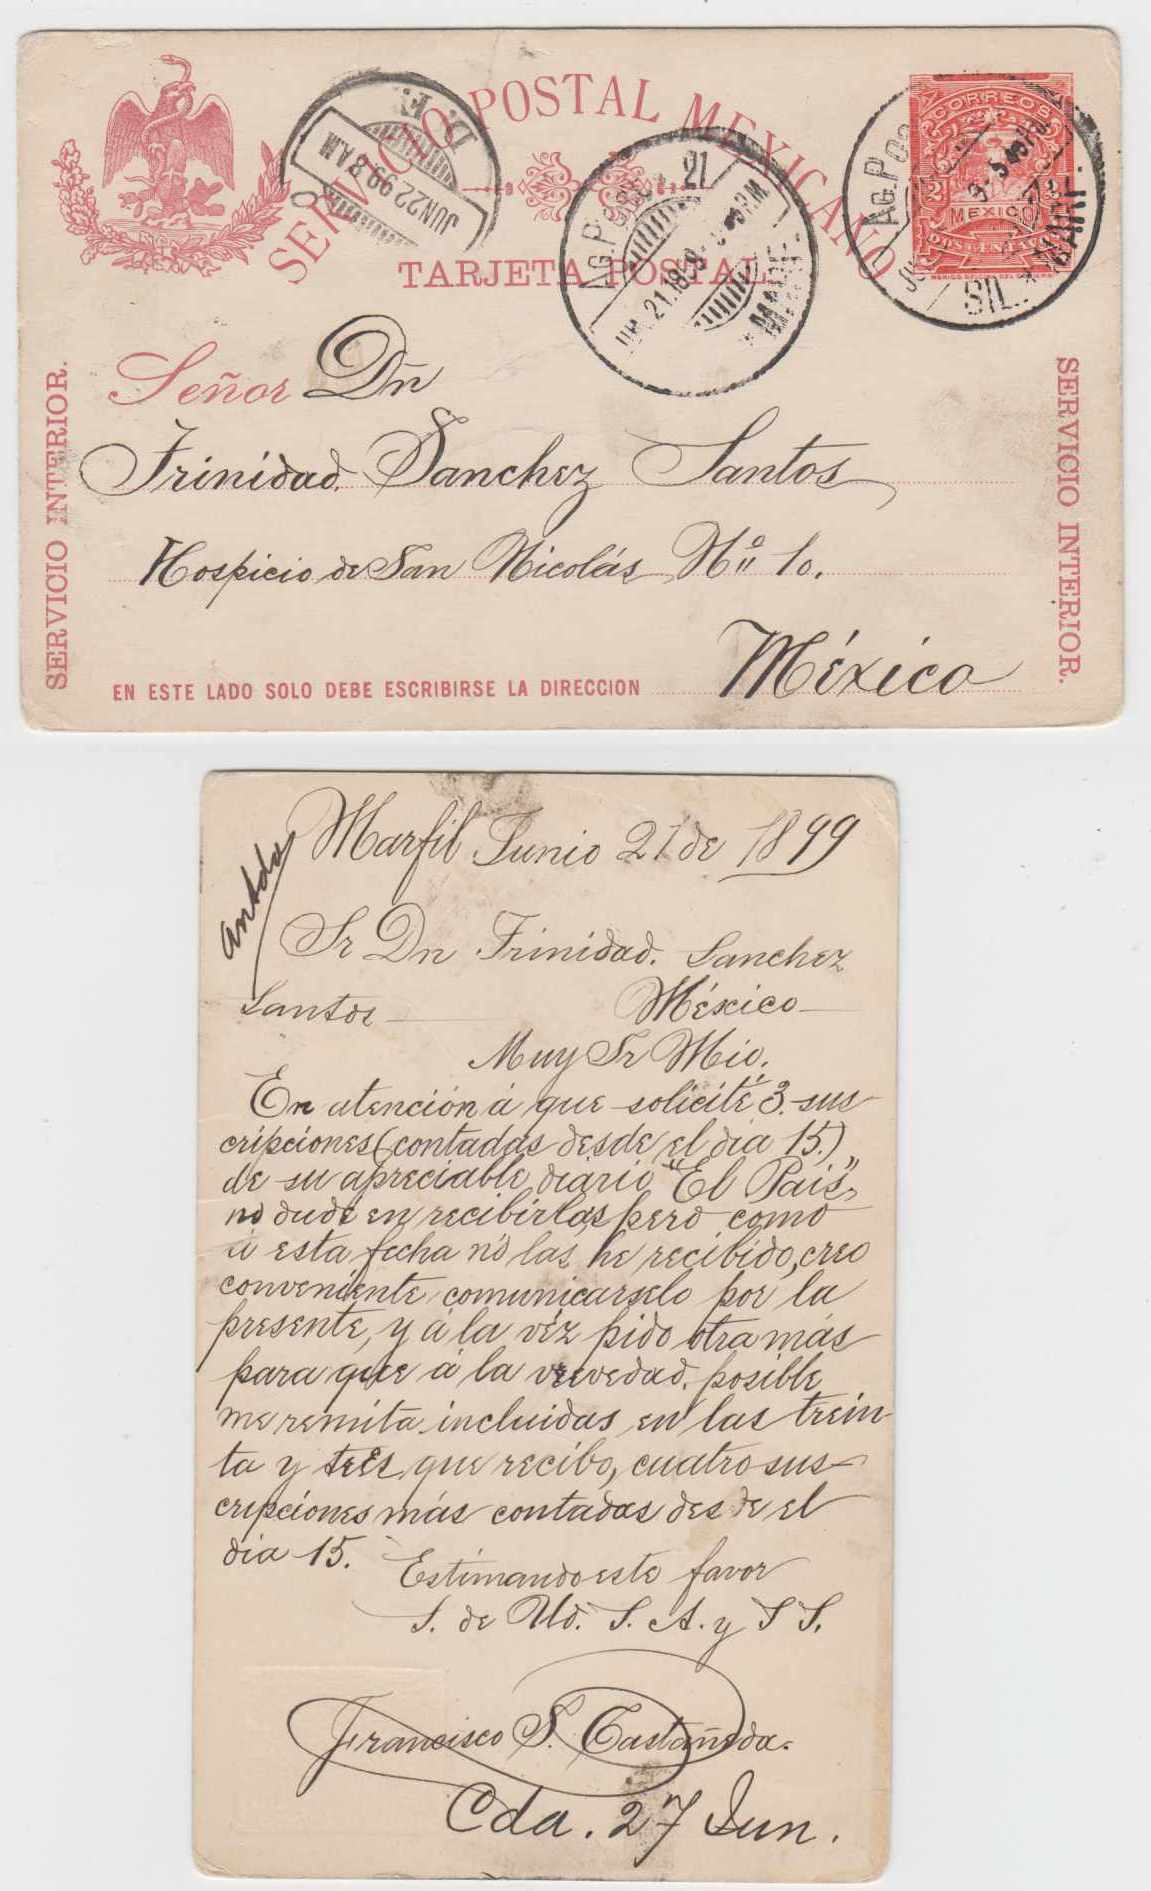 SERVICIO POSTAL MEXICANO
TARJETA POSTAL
D. F.
JUN 22 99 8 AM
AG. POS
21
21.189
CORREOS
MEXICO
AG. P
SIL.
SERVICIO INTERIOR.
SERVICIO INTERIOR.
Señor Dn
Trinidad Sanchez Santos
Hospicio de San Nicolás No 10.
México
EN ESTE LADO SOLO DEBE ESCRIBIRSE LA DIRECCION
Marfil Junio 21 de 1899
Sr Dn Trinidad. Sanchez
Santos México
Muy Sr Mio.
En atención á que solicité 3. sus-
cripciones (contadas desde el dia 15.)
de su apreciable diário "El Pais",
no dudé en recibirlas, pero como
á esta fecha no las he recibido, creo
conveniente comunicarselo por la
presente, y á la véz pido otra más
para que á la vrevedad. posible
me remita incluidas en las trein
ta y tres que recibo, cuatro sus-
cripciones más contadas desde el
dia 15.
Estimando este favor
S. de Ud. S. A. y S S.
Francisco S. Castañeda.
Cda. 27 Jun.